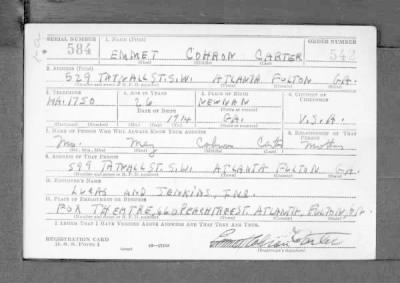 SERIAL NUMBER 1. NAME (Print) ORDER NUMBER
584 EMMET COHRON CARTER 542
(First) (Middle) (Last)
2. ADDRESS (Print)
529 TATNALL ST. S.W. ATLANTA FULTON GA.
3. TELEPHONE 4. AGE IN YEARS 5. PLACE OF BIRTH 6. COUNTRY OF CITIZENSHIP
MA. 1750 26 NEWNAN
DATE OF BIRTH
1914 GA. U.S.A.
7. NAME OF PERSON WHO WILL ALWAYS KNOW YOUR ADDRESS 8. RELATIONSHIP OF THAT PERSON
Mrs. Mary Cohron Carter Mother
9. ADDRESS OF THAT PERSON
599 TATNALL ST. S.W. ATLANTA FULTON GA
10. EMPLOYER'S NAME
LUCAS AND JENKINS, INC.
11. PLACE OF EMPLOYMENT OR BUSINESS
FOX THEATRE, 660 PEACHTREE ST. ATLANTA, FULTON, GA.
I AFFIRM THAT I HAVE VERIFIED ABOVE ANSWERS AND THAT THEY ARE TRUE.
REGISTRATION CARD
D. S. S. Form 1
Emmet Cohron Carter
(Registrant's signature)